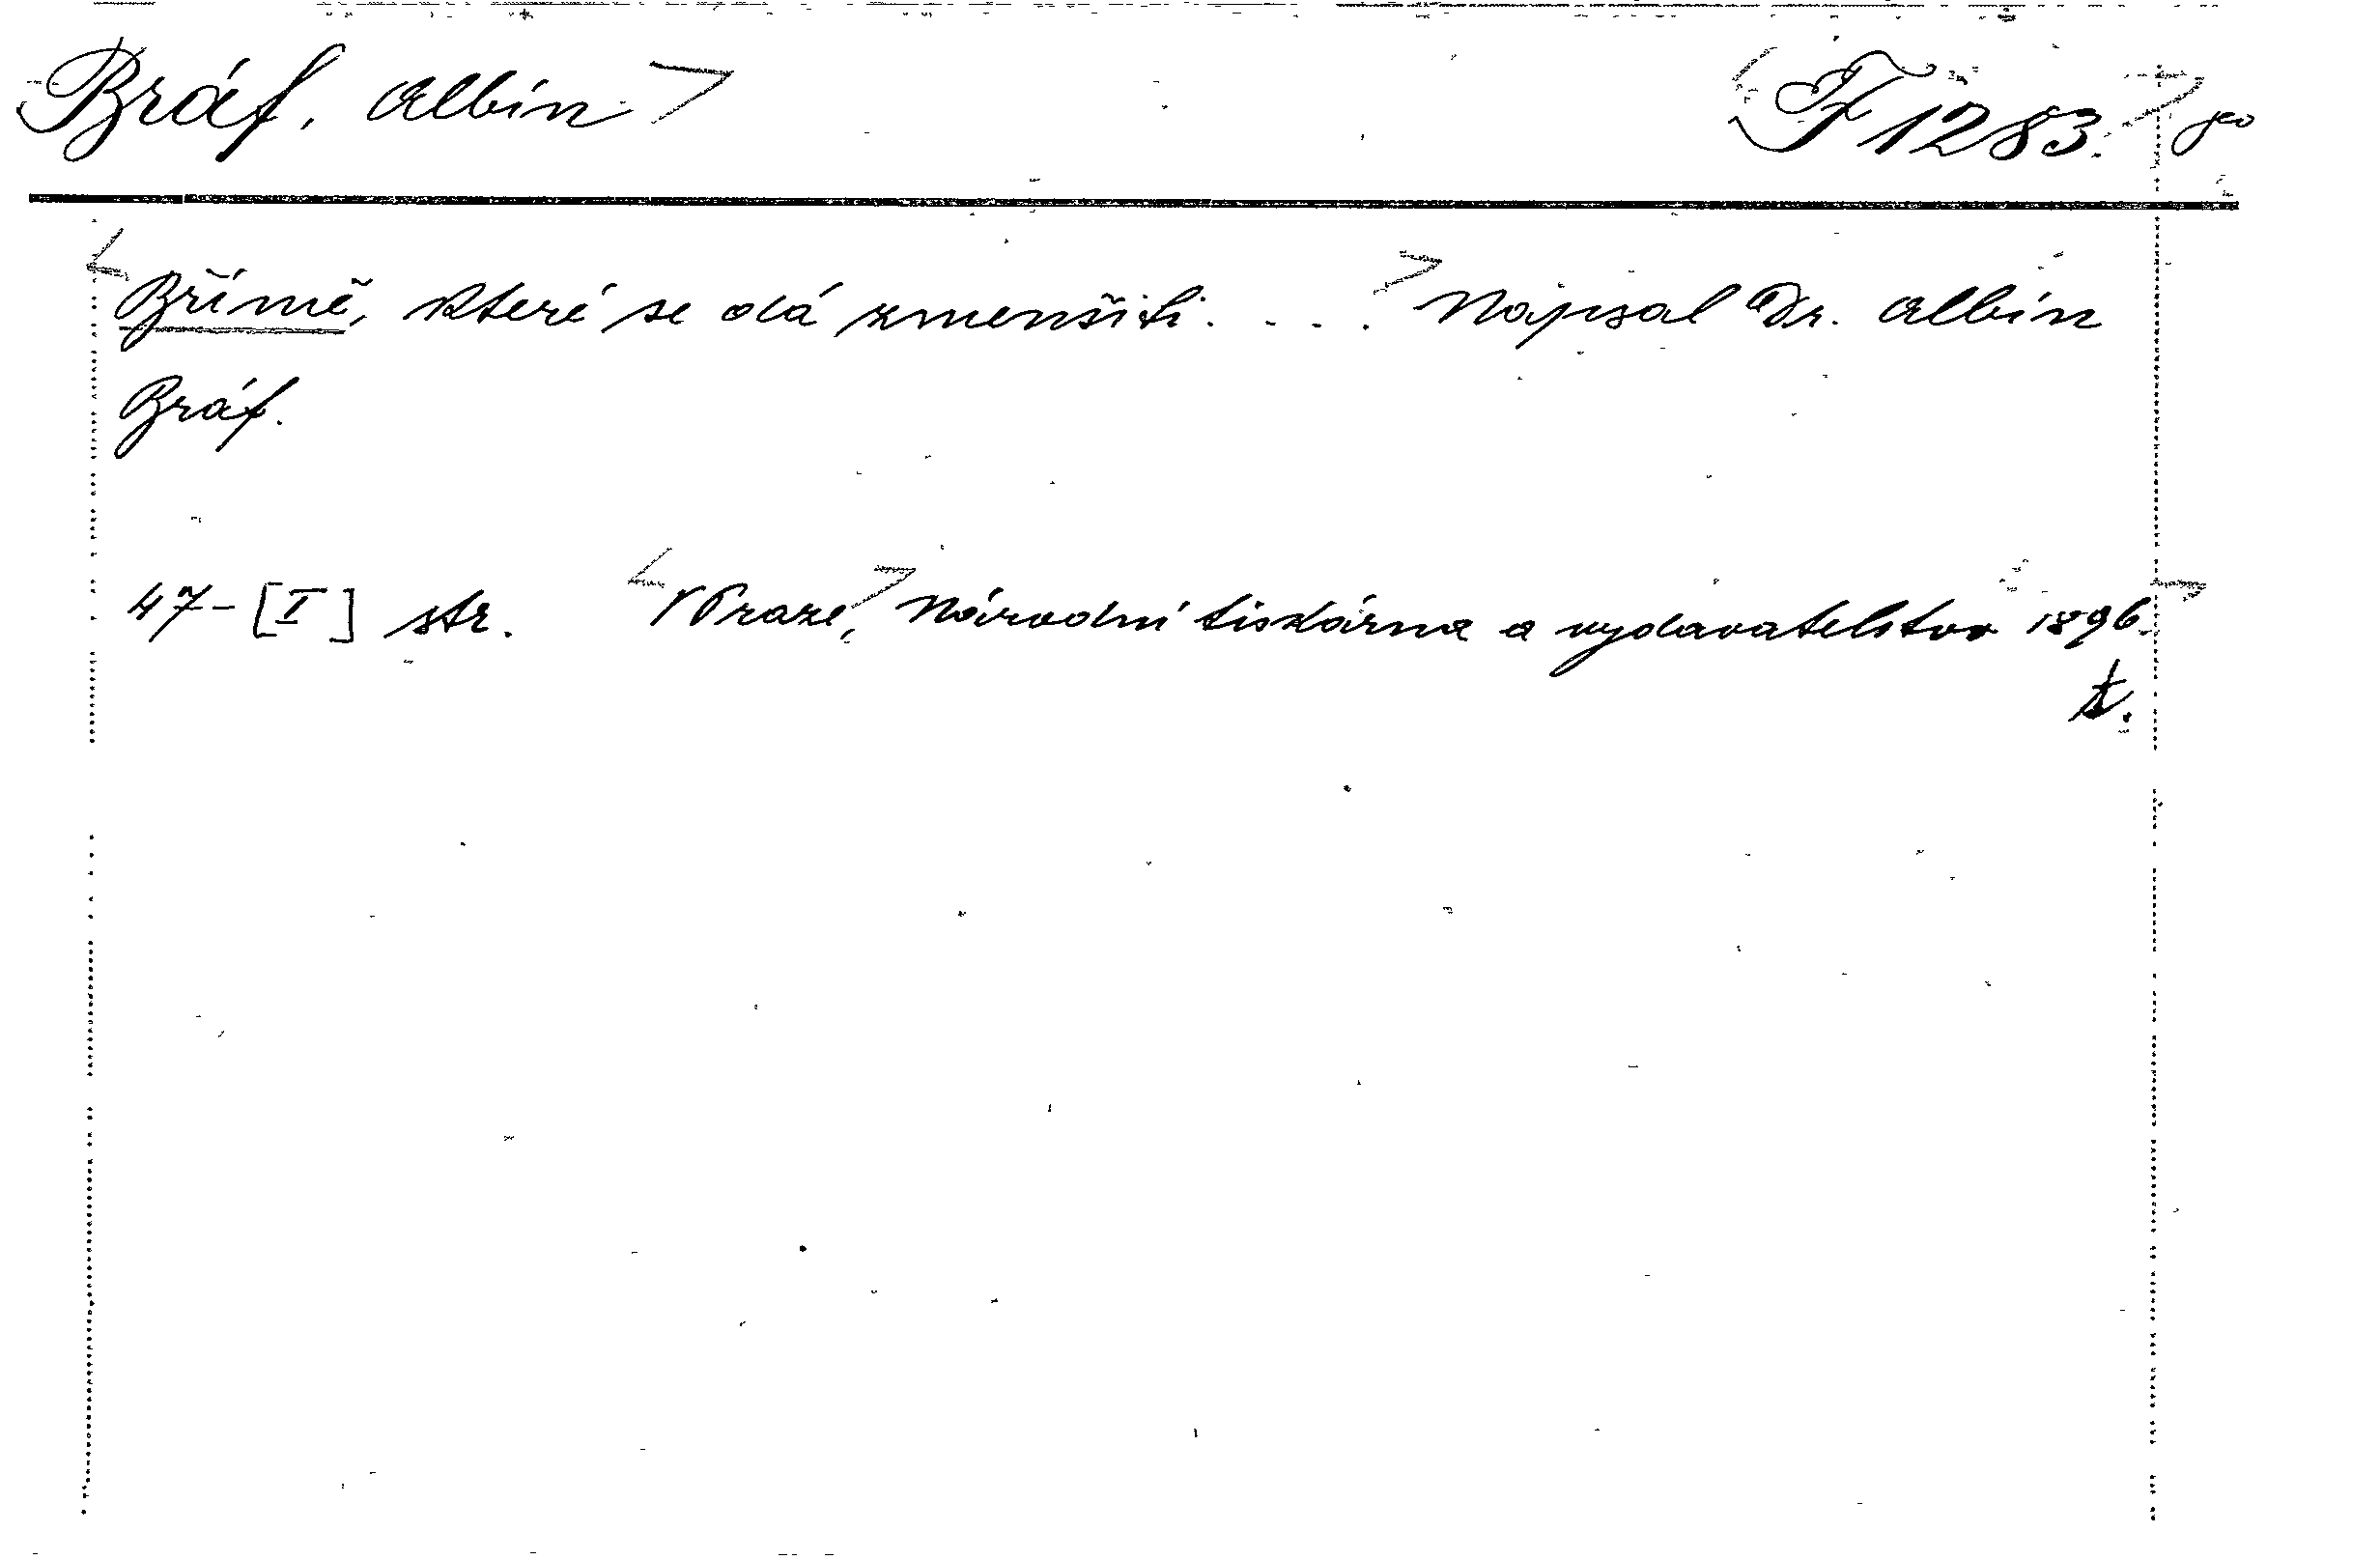 Bráf, Albín F 1283.
Břímě, které se dá zmenšiti. . . . Napsal Dr. Albín
Bráf.
47-[I] str. V Praze, Národní tiskárna a vydavatelstvo 1896.